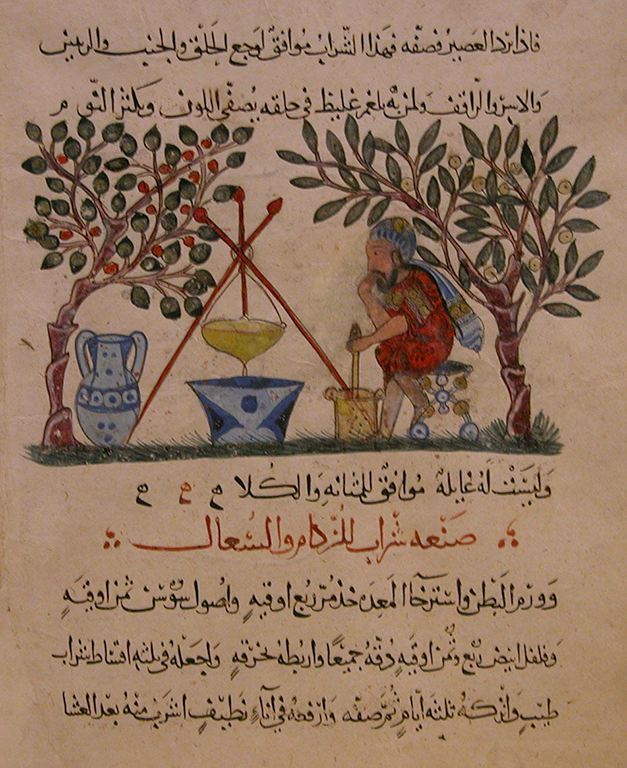 فاذا برد العصير فصفه فهذا الشراب موافق لوجع الحلق والجنب والرئتين
والاسر والراقف ولمن به بلغم غليظ في حلقه يصفي اللون ويكثر النوم
وليست له غايلة موافق للمثانه والكلا
صنعه شراب للزكام والسعال
وورم البطن واسترخا المعده خذ مر ربع اوقيه واصول سوس ثمن اوقيه
وفلفل ابيض ربع وثمن اوقيه دقه جميعا واربطه بخرقه واجعله في ثلثه اقساط شراب
طيب واتركه ثلثه ايام ثم صفه وارفعه في اناء نظيف اشرب منه بعد العشا